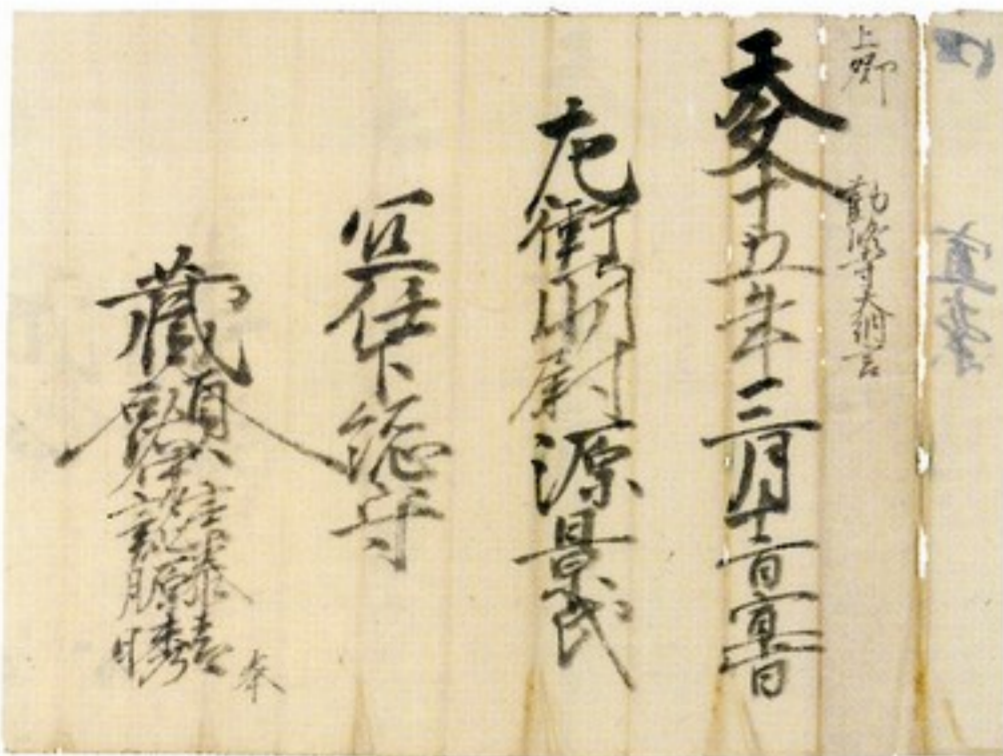 口　宣案
上卿　勧修寺大納言
天文十五年三月日宣旨
左衛門尉源景氏
宜任下総守
蔵人頭藤原晴秀　奉